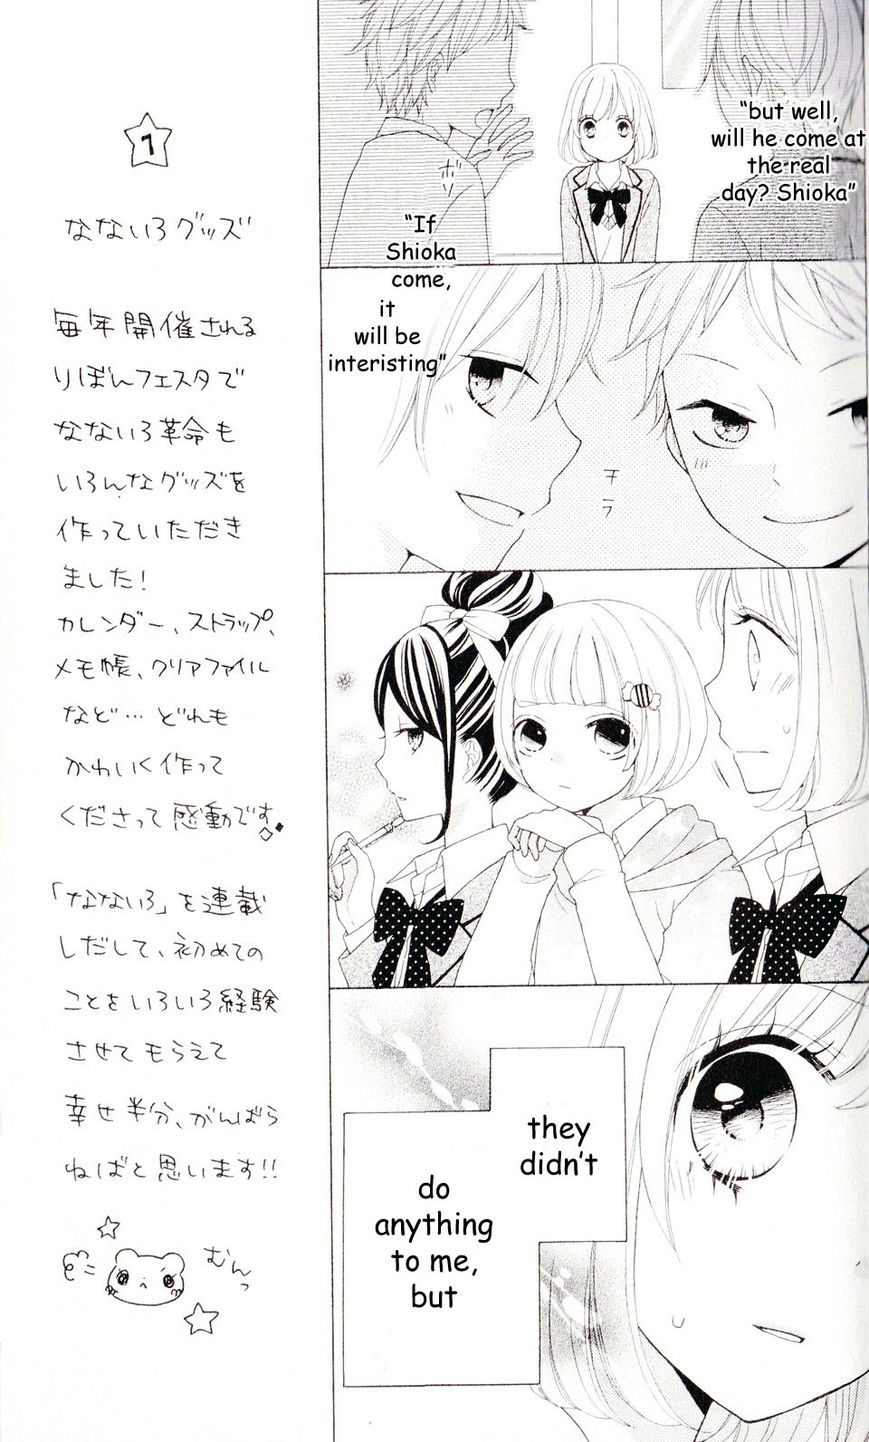 1
なないろグッズ
毎年開催される
りぼんフェスタで
なないろ革命も
いろんなグッズを
作っていただき
ました!
カレンダー、ストラップ、
メモ帳、クリアファイル
など…どれも
かわいく作って
くださって感動です
「なないろ」を連載
しだして、初めての
ことをいろいろ経験
させてもらえて
幸せ半分、がんばら
ねばと思います!!
むんっ
"but well,
will he come at
the real
day? Shioka"
ボソ
"If
Shioka
come,
it
will be
interisting"
チラ
they
didn't
do
anything
to me,
but